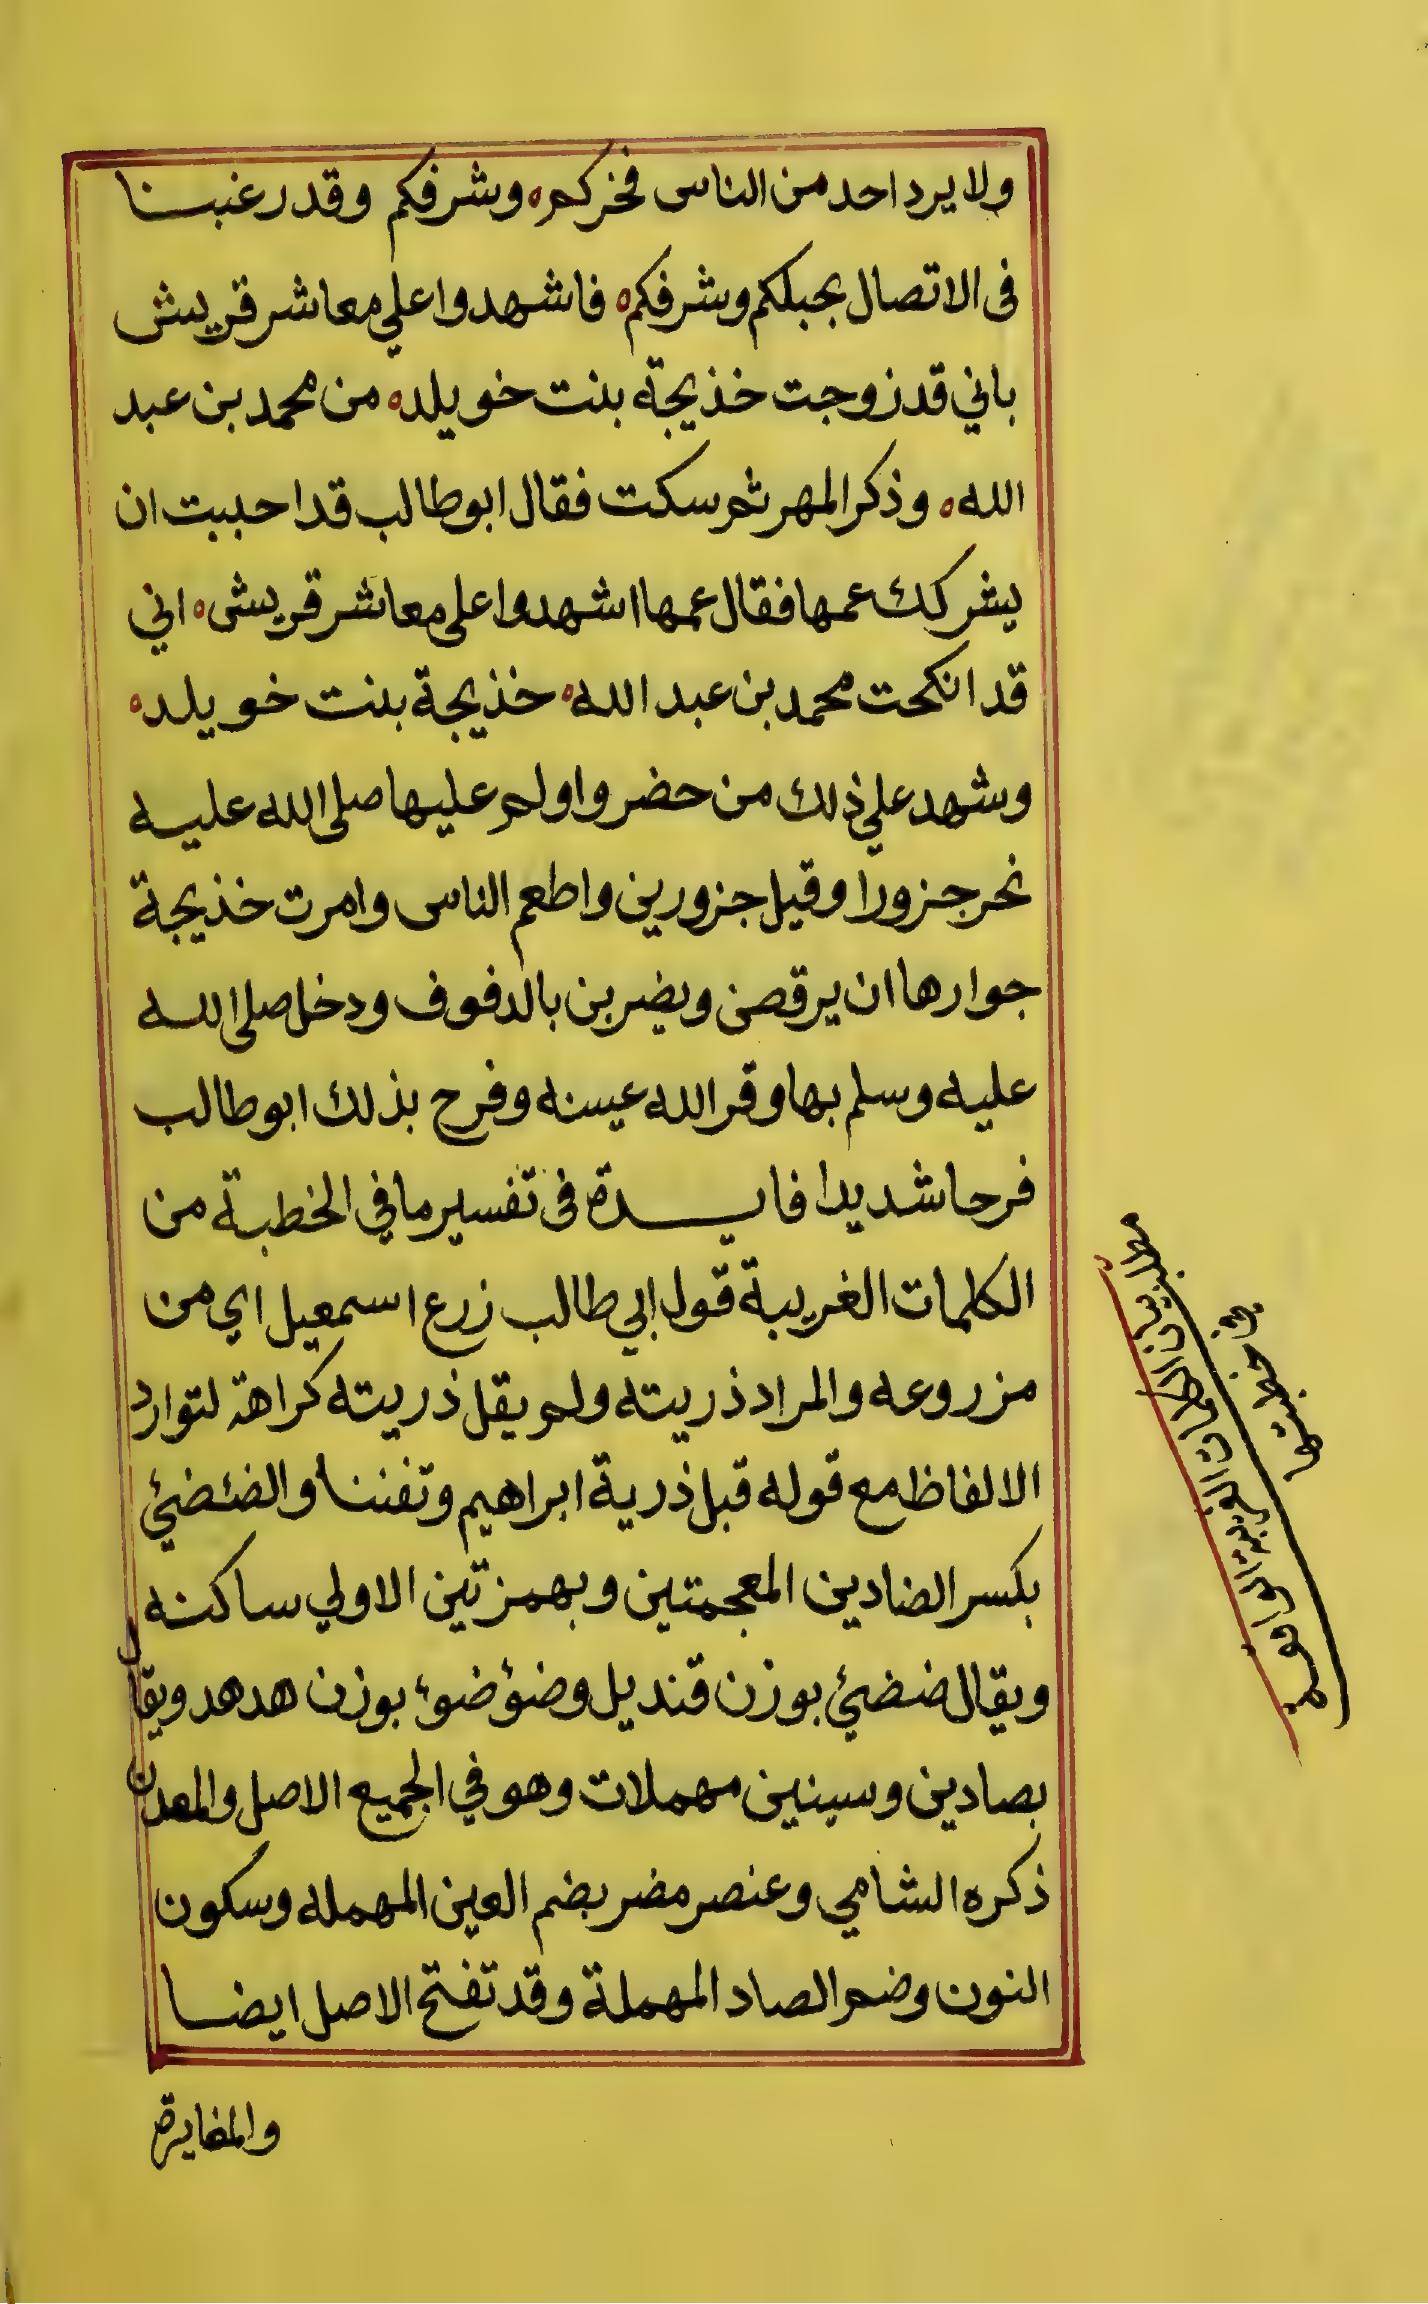 ولا يرد احد من الناس فخركم ه وشرفكم وقد رغبنا
في الاتصال بحبلكم وشرفكم ه فاشهدوا علي معاشر قريش
باني قد زوجت خذيجة بنت خويلد ه من محمد بن عبد
الله ه وذكر المهر ثم سكت فقال ابو طالب قد احببت ان
يشركك عمها فقال عمها اشهدوا علي معاشر قريش ه اني
قد انكحت محمد بن عبد الله ه خذيجة بنت خويلد ه
وشهد علي ذلك من حضر واولم عليها صلى الله عليه
نحر جزورا وقيل جزورين واطعم الناس وامرت خذيجة
جوارها ان يرقصن ويضربن بالدفوف ودخل صلى الله
عليه وسلم بها وقر الله عينه وفرح بذلك ابو طالب
فرحا شديدا فايدة في تفسير ما في الخطبة من
الكلمات الغريبة قول ابي طالب زرع اسمعيل اي من
مزروعه والمراد ذريته ولم يقل ذريته كراهة لتوارد
الالفاظ مع قوله قبل ذرية ابراهيم وتفننا والضئضئ
بكسر الضادين المعجمتين وبهمزتين الاولي ساكنه
ويقال ضئضئ بوزن قنديل وضؤضوء بوزن هدهد ويقال
بصادين وسينين مهملات وهو في الجميع الاصل والمعدن
ذكره الشامي وعنصر مضر بضم العين المهمله وسكون
النون وضم الصاد المهملة وقد تفتح الاصل ايضا
والمغايرة
مطلب بيان الكلمات الغريبة الواقعة
في خطبتها